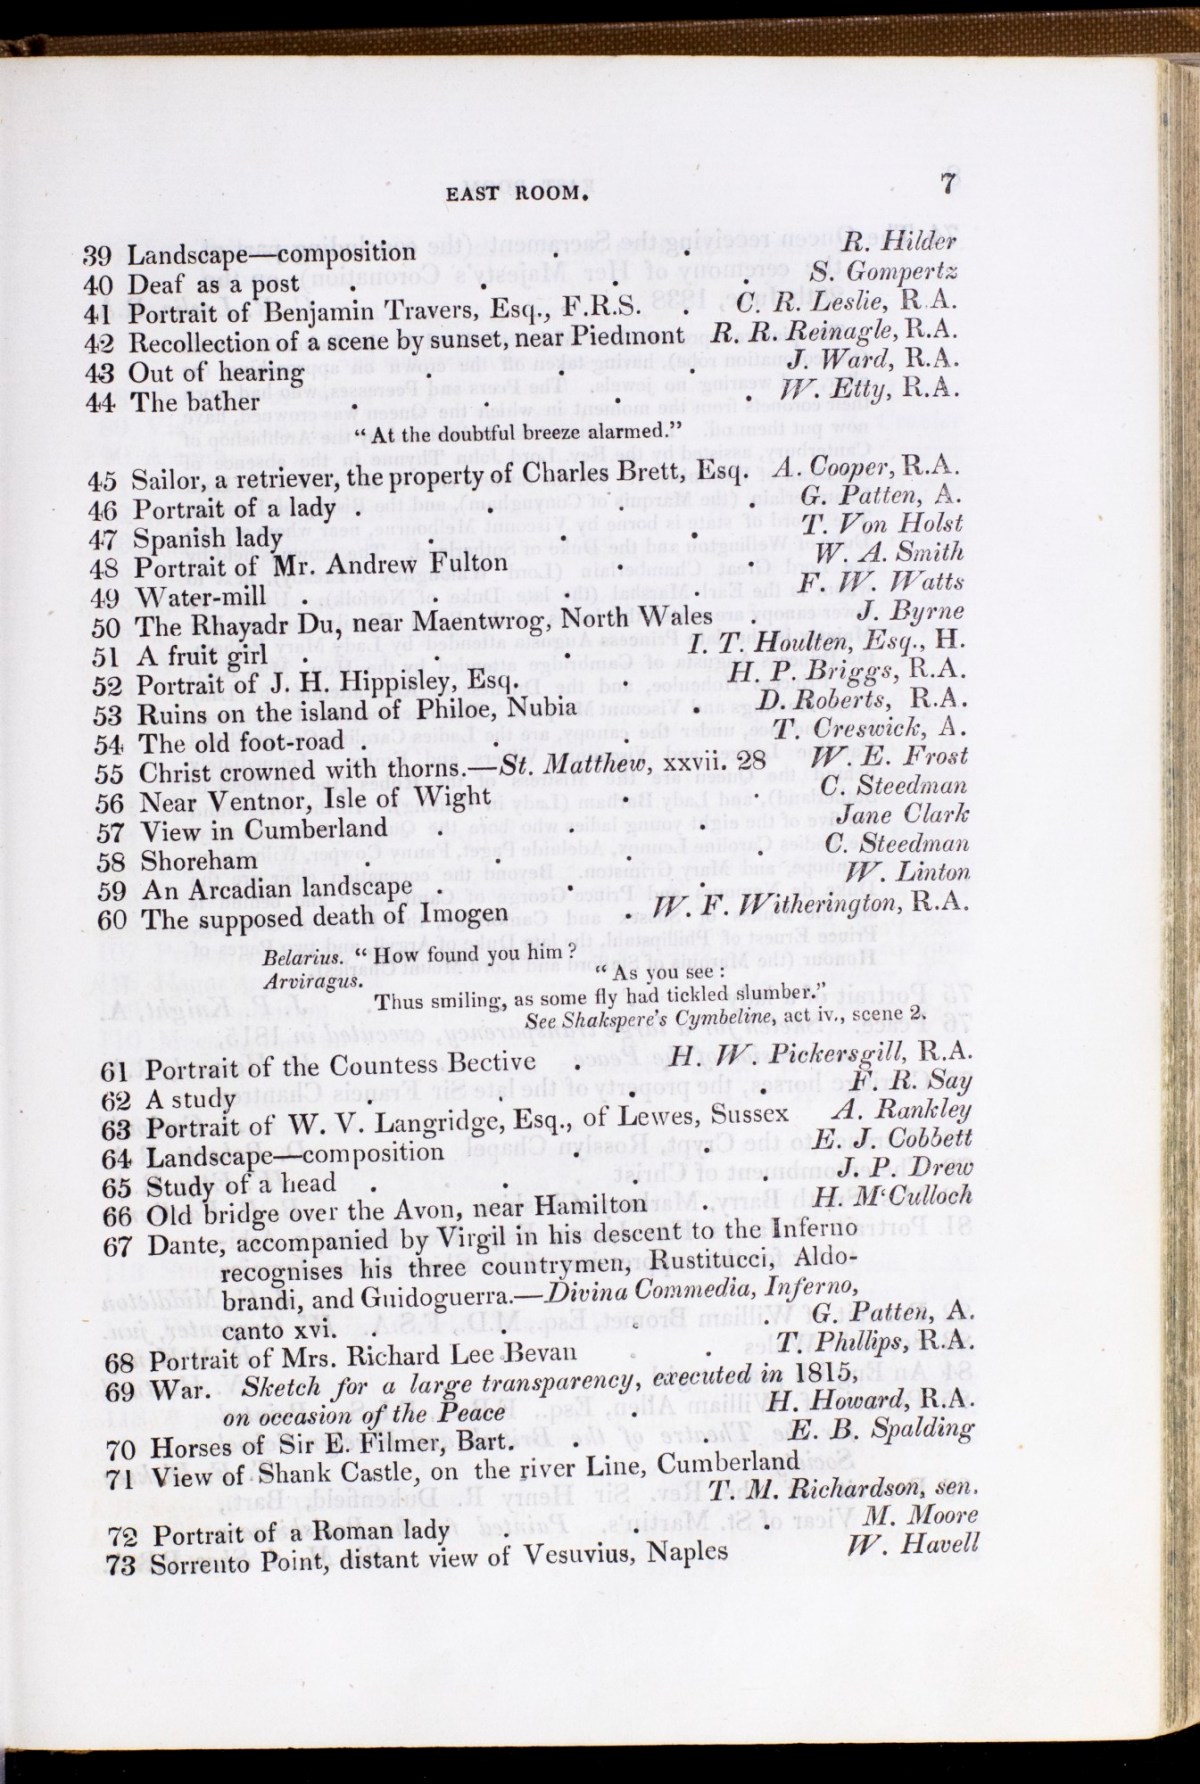 EAST ROOM. 7
39 Landscape—composition . . R. Hilder
40 Deaf as a post . . . . S. Gompertz
41 Portrait of Benjamin Travers, Esq., F.R.S. . C. R. Leslie, R.A.
42 Recollection of a scene by sunset, near Piedmont R. R. Reinagle, R.A.
43 Out of hearing . . . J. Ward, R.A.
44 The bather . . . . W. Etty, R.A.
“At the doubtful breeze alarmed.”
45 Sailor, a retriever, the property of Charles Brett, Esq. A. Cooper, R.A.
46 Portrait of a lady . . . . G. Patten, A.
47 Spanish lady . . . T. Von Holst
48 Portrait of Mr. Andrew Fulton . . W. A. Smith
49 Water-mill . . . . F. W. Watts
50 The Rhayadr Du, near Maentwrog, North Wales . J. Byrne
51 A fruit girl . . . I. T. Houlten, Esq., H.
52 Portrait of J. H. Hippisley, Esq. . H. P. Briggs, R.A.
53 Ruins on the island of Philoe, Nubia . D. Roberts, R.A.
54 The old foot-road . . . T. Creswick, A.
55 Christ crowned with thorns.—St. Matthew, xxvii. 28 W. E. Frost
56 Near Ventnor, Isle of Wight . . C. Steedman
57 View in Cumberland . . . Jane Clark
58 Shoreham . . . . C. Steedman
59 An Arcadian landscape . . . W. Linton
60 The supposed death of Imogen . W. F. Witherington, R.A.
Belarius. “How found you him?
Arviragus. “As you see:
Thus smiling, as some fly had tickled slumber.”
See Shakspere's Cymbeline, act iv., scene 2.
61 Portrait of the Countess Bective . H. W. Pickersgill, R.A.
62 A study . . . . F. R. Say
63 Portrait of W. V. Langridge, Esq., of Lewes, Sussex A. Rankley
64 Landscape—composition . . E. J. Cobbett
65 Study of a head . . . . J. P. Drew
66 Old bridge over the Avon, near Hamilton . H. M‘Culloch
67 Dante, accompanied by Virgil in his descent to the Inferno
recognises his three countrymen, Rustitucci, Aldo-
brandi, and Guidoguerra.—Divina Commedia, Inferno,
canto xvi. . . . . G. Patten, A.
68 Portrait of Mrs. Richard Lee Bevan . . T. Phillips, R.A.
69 War. Sketch for a large transparency, executed in 1815,
on occasion of the Peace . H. Howard, R.A.
70 Horses of Sir E. Filmer, Bart. . . E. B. Spalding
71 View of Shank Castle, on the river Line, Cumberland
T. M. Richardson, sen.
72 Portrait of a Roman lady . . . M. Moore
73 Sorrento Point, distant view of Vesuvius, Naples W. Havell